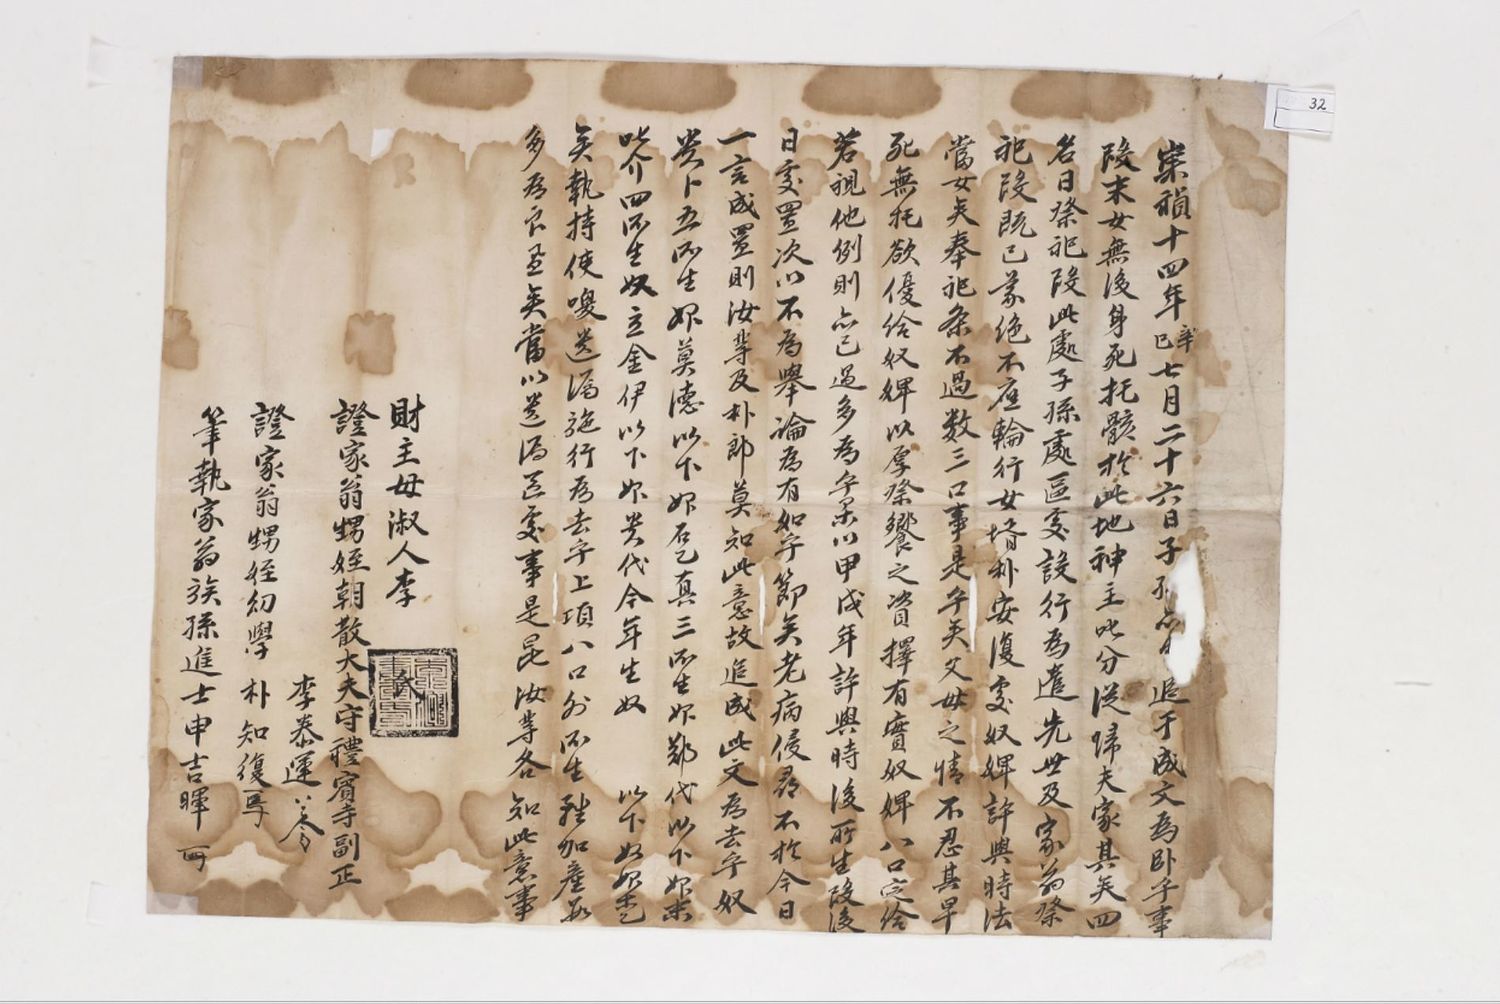 崇禎十四年辛巳七月二十六日子孫亦中追于成文為臥乎事
段末女無後身死托骸於此地神主叱分從歸夫家其矣四
名日祭祀段此處子孫處區處設行為遣先世及家翁祭
祀段既已蒙絶不應輪行女壻朴安復處奴婢許與時法
當女矣奉祀条不過数三口事是乎矣父母之情不忍其早
死無托欲優給奴婢以厚祭饗之資擇有實奴婢八口定給
若視他例則亦已過多為乎㫆甲戌年許與時後所生段後
日處置次以不為擧論為有如乎節矣老病侵尋不於今日
一言成置則汝輩及朴郎莫知此意故追成此文為去乎奴
貴卜五所生婢莫德以下婢石乙真三所生婢鄭代以下婢末
叱介四所生奴立金伊以下婢貴代今年生奴 以下奴婢乙
矣執持使喚㢱溺施行為去乎上項八口外所生雖加産數
多為良置矣當以㢱溺區處事是昆汝等各知此意事
財主母淑人李
證家翁甥姪朝散大夫守禮賓寺副正
李泰運
證家翁甥姪幼學朴知復
筆執家翁族孫進士申吉暉
32